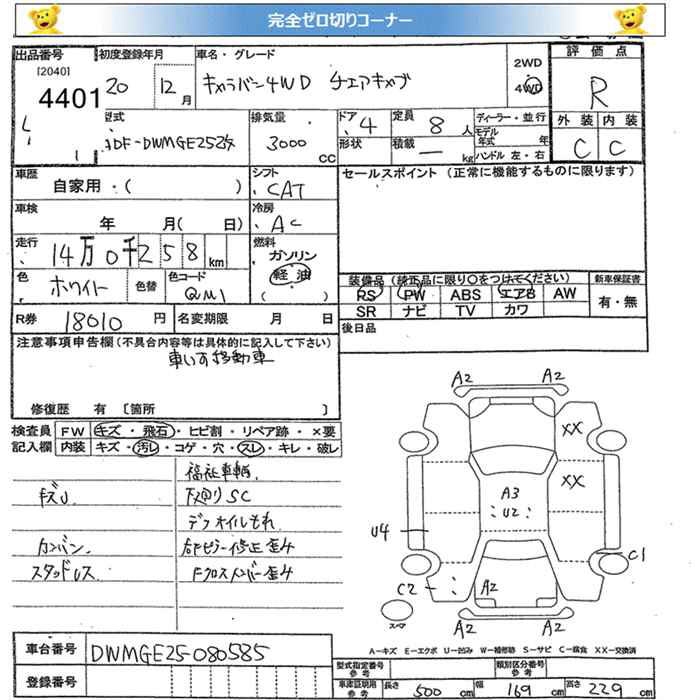 完全ゼロ切りコーナー
出品番号 初度登録年月 車名・グレード 評価点
[2040]
4401
20 12月 キャラバン4WD チェアキャブ 2WD 4WD R
型式 排気量 ドア 定員 ディーラー・並行 外装 内装
ADF-DWMGE25改 3000 cc 4 8人 モデル年式 年 C C
形状 積載 ー kg ハンドル 左・右
車歴 シフト セールスポイント (正常に機能するものに限ります)
自家用・( ) CAT
車検 冷房
年 月( 日) AC
走行 燃料
14万0千258km ガソリン
軽油
色 色替 色コード ( )
ホワイト QM1
装備品(純正品に限り○をつけてください) 新車保証書
PS PW ABS エアB AW 有・無
SR ナビ TV カワ
R券 18010円 名変期限 月 日 後日品
注意事項申告欄(不具合内容等は具体的に記入して下さい)
車いす移動車
修復歴 有 [箇所 ]
検査員 FW キズ・飛石・ヒビ割・リペア跡・×要
記入欄 内装 キズ・汚レ・コゲ・穴・スレ・キレ・破レ
福祉車輌
キズU 下廻りSC
デフオイルもれ
カンバン 右Fピラー修正歪み
スタッドレス Fクロスメンバー歪み
A2 A2
XX
XX
A3
U2
U4
C1
C2 A2
スペア
A2 A2
A-キズ E-エクボ U-凹み W-補修跡 S-サビ C-腐食 XX-交換済
車台番号 DWMGE25-080585
登録番号
型式指定番号 参考 類別区分番号 参考
車庫証明用 参考 長さ 500 cm 幅 169 cm 高さ 229 cm